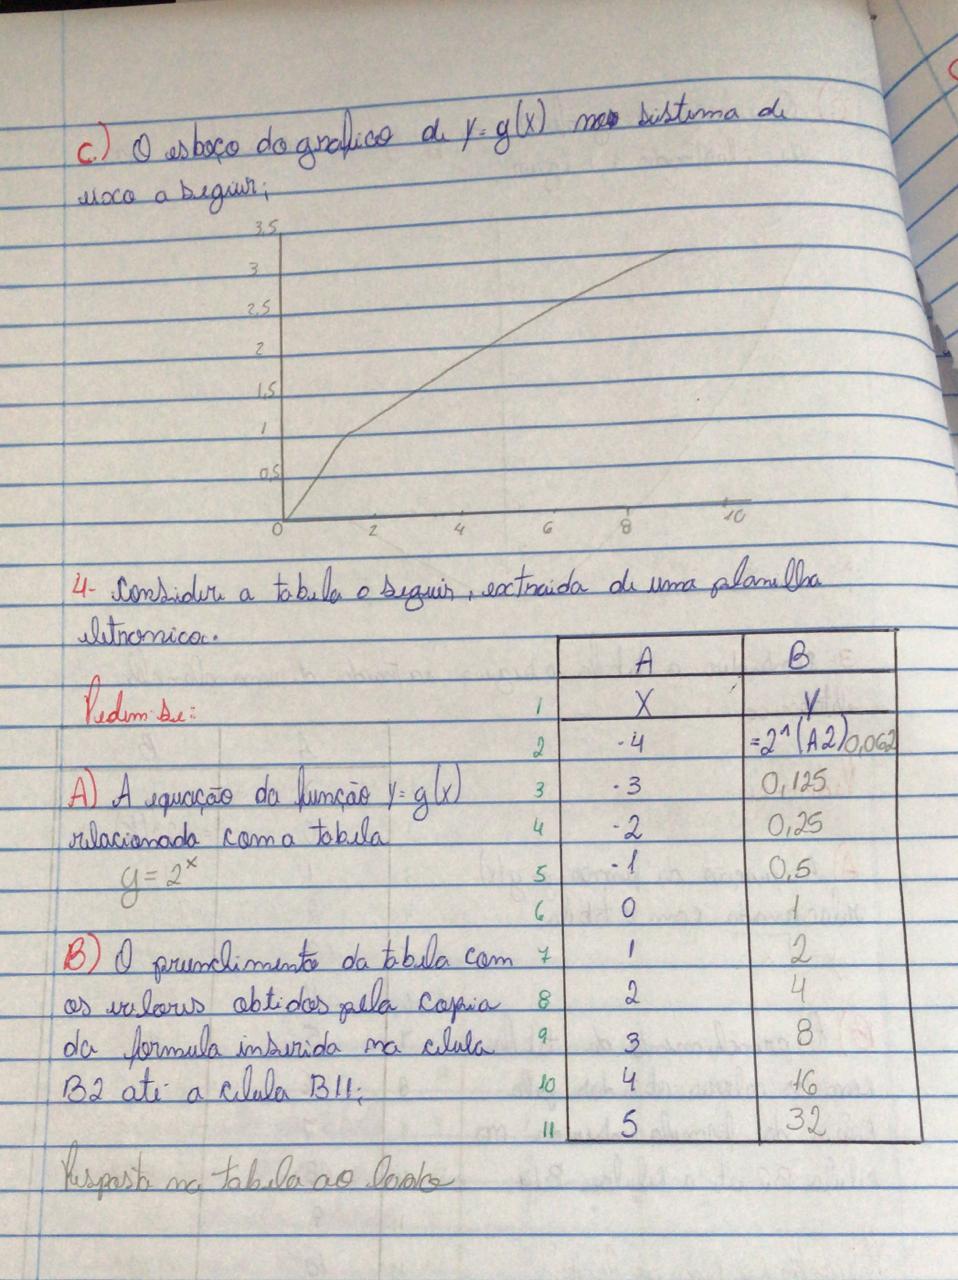 c.) O esboço do grafico de y=g(x) no sistema de
eixo a seguir;
3,5
3
2,5
2
1,5
1
0,5
0 2 4 6 8 10
4- Considere a tabela a seguir, extraida de uma planilha
eletronica.
Pedem-se:
A) A equação da função y=g(x)
relacionada com a tabela
y=2^x
B) O preenchimento da tabela com
os valores obtidos pela copia
da formula inserida na celula
B2 até a celula B11;
Resposta na tabela ao lado
A B
1 X Y
2 -4 =2^(A2) 0,062
3 -3 0,125
4 -2 0,25
5 -1 0,5
6 0 1
7 1 2
8 2 4
9 3 8
10 4 16
11 5 32